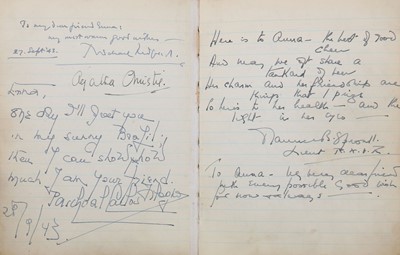 To my dear friend Emma,
my most warm good wishes —
27. Sept. 43.
Agatha Christie.
Emma,
One day I'll greet you
in my sunny Brazil;
then I can show how
much I am your friend.
28/9/43
Here is to Anna — the best of good
cheer
And may we oft share a
tankard of beer
Her charm and her friendship are
things that I prize
So here is to her health — and the
light in her eyes —
Lieut
To Anna — my very dear friend
with every possible good wish
for now & always —